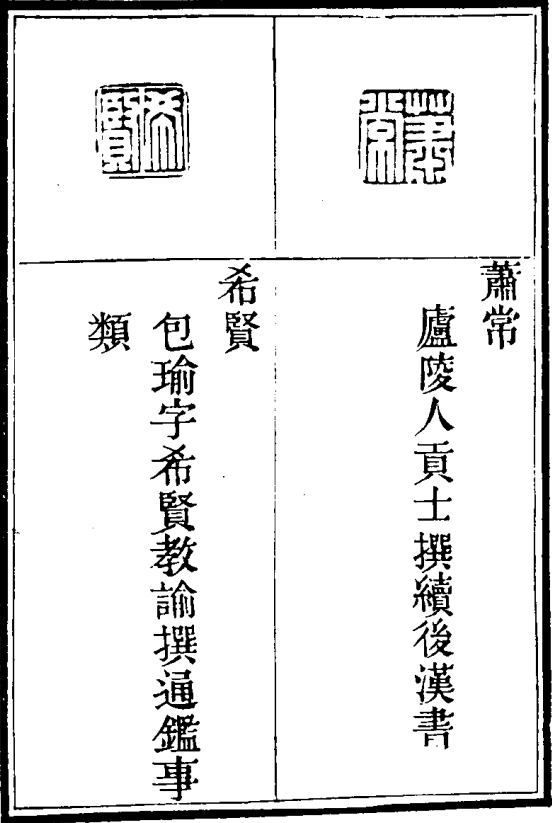 蕭常
蕭常
廬陵人貢士撰續後漢書
希賢
希賢
包瑜字希賢教諭撰通鑑事
類